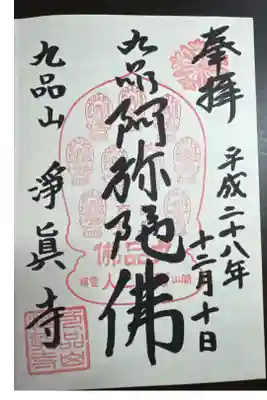 奉拝
平成二十八年
十二月十日
九品
阿弥陀佛
九品山
淨眞寺